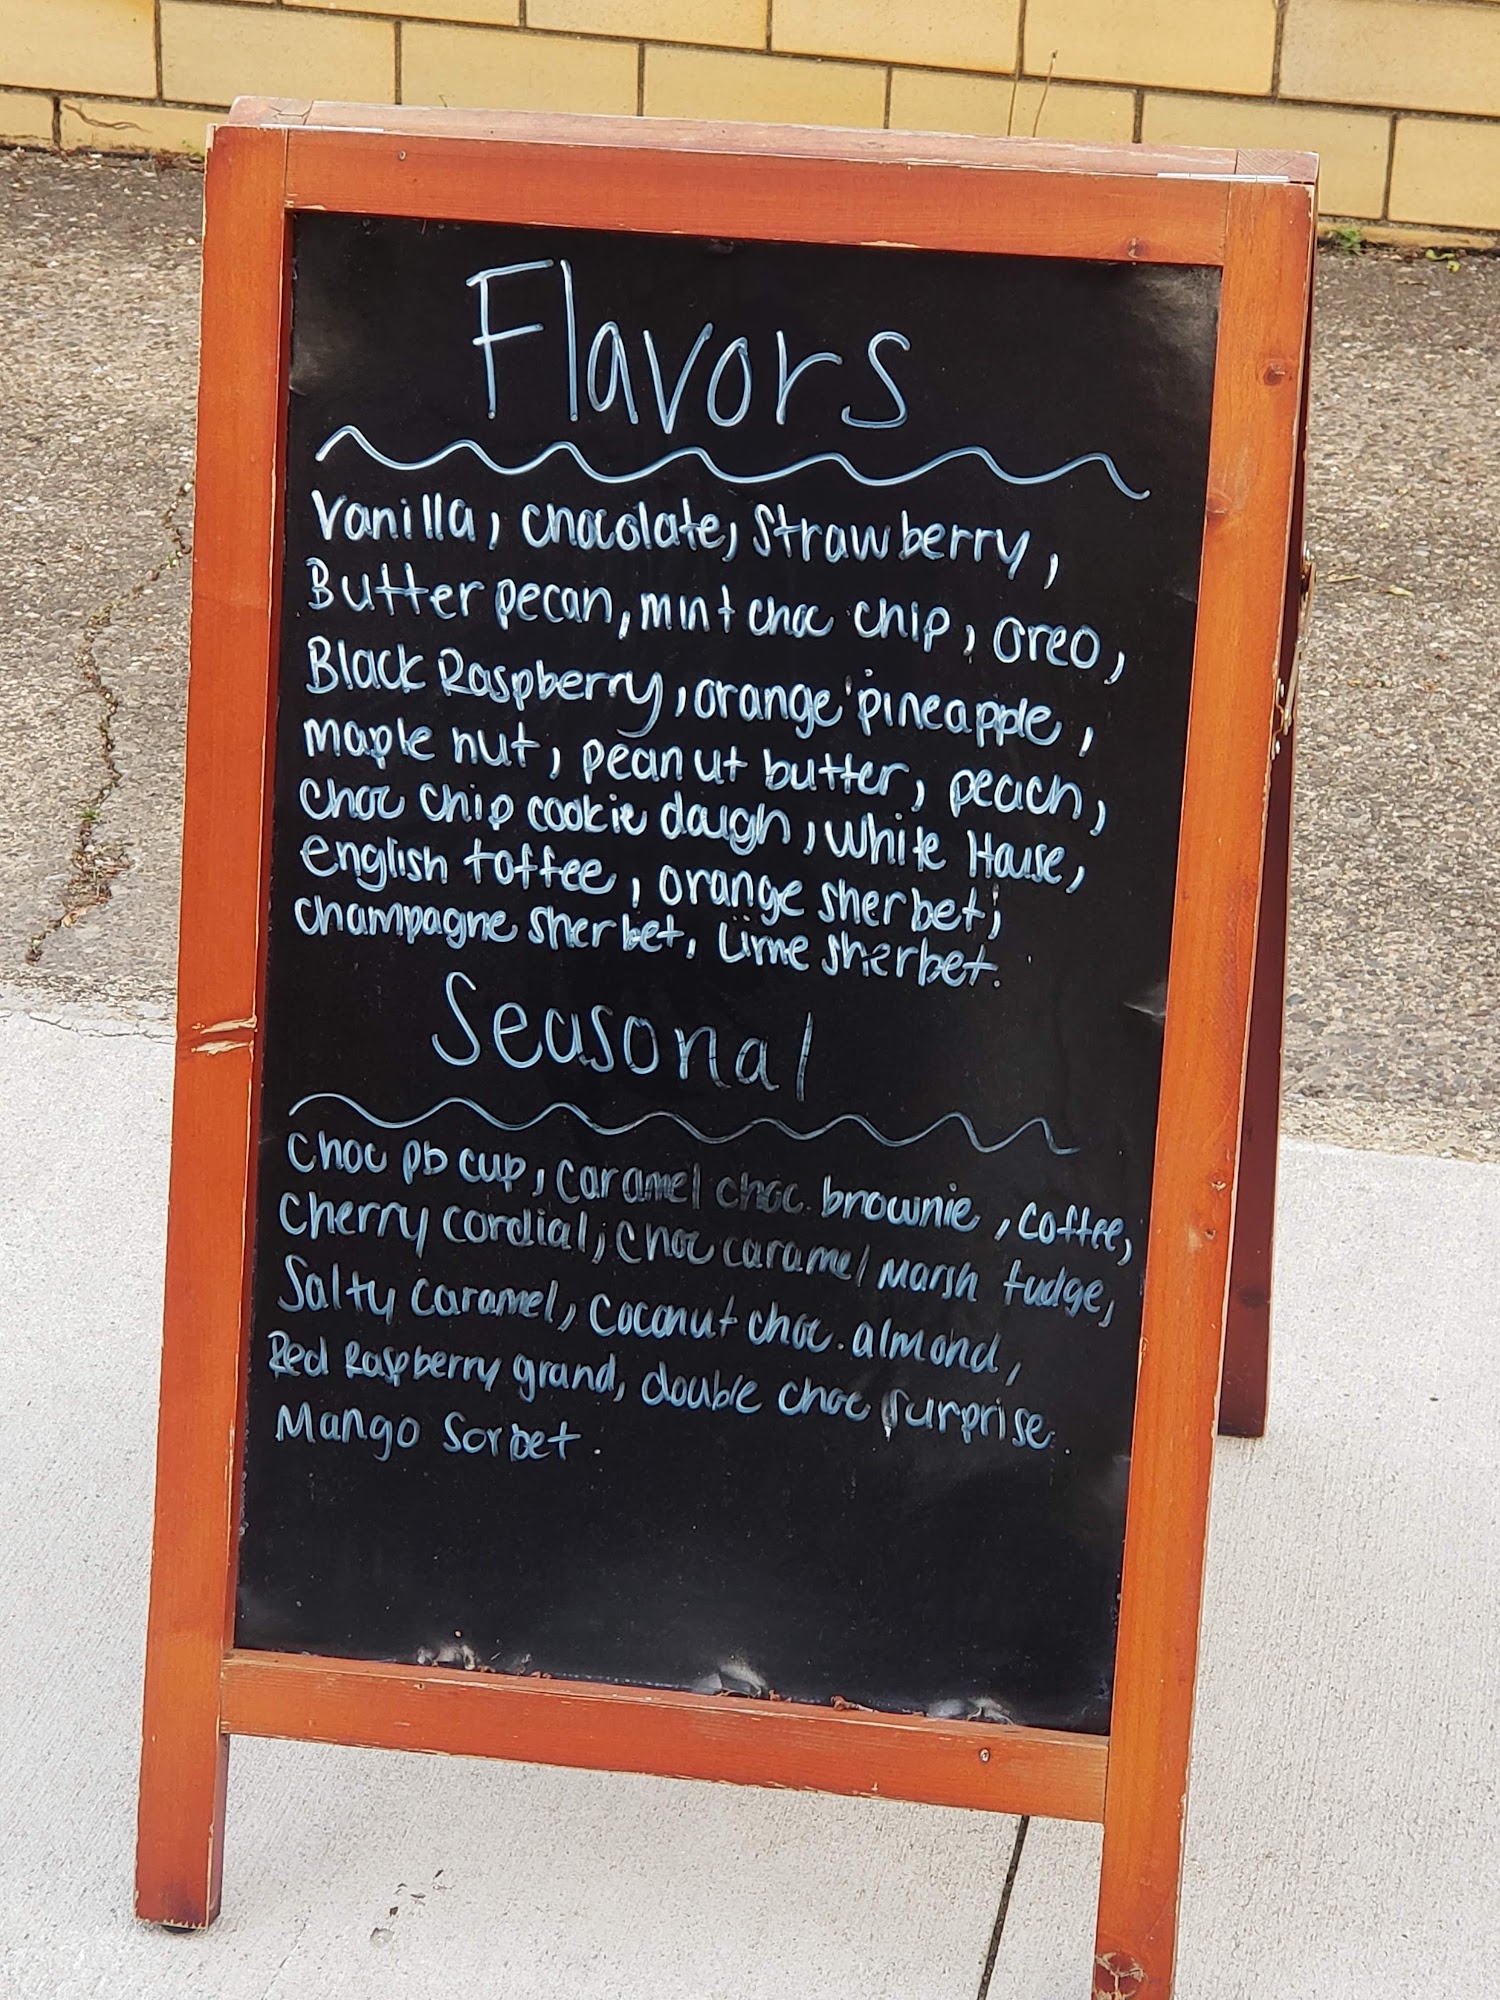 Flavors
Vanilla, chocolate, Strawberry,
Butter pecan, mint choc chip, oreo,
Black Raspberry, orange pineapple,
maple nut, peanut butter, peach,
choc chip cookie dough, White House,
english toffee, orange sherbet,
champagne sherbet, Lime sherbet.
Seasonal
Choc pb cup, caramel choc. brownie, coffee,
Cherry cordial, choc caramel marsh fudge,
Salty caramel, Coconut choc. almond,
Red Raspberry grand, double choc surprise.
Mango Sorbet.